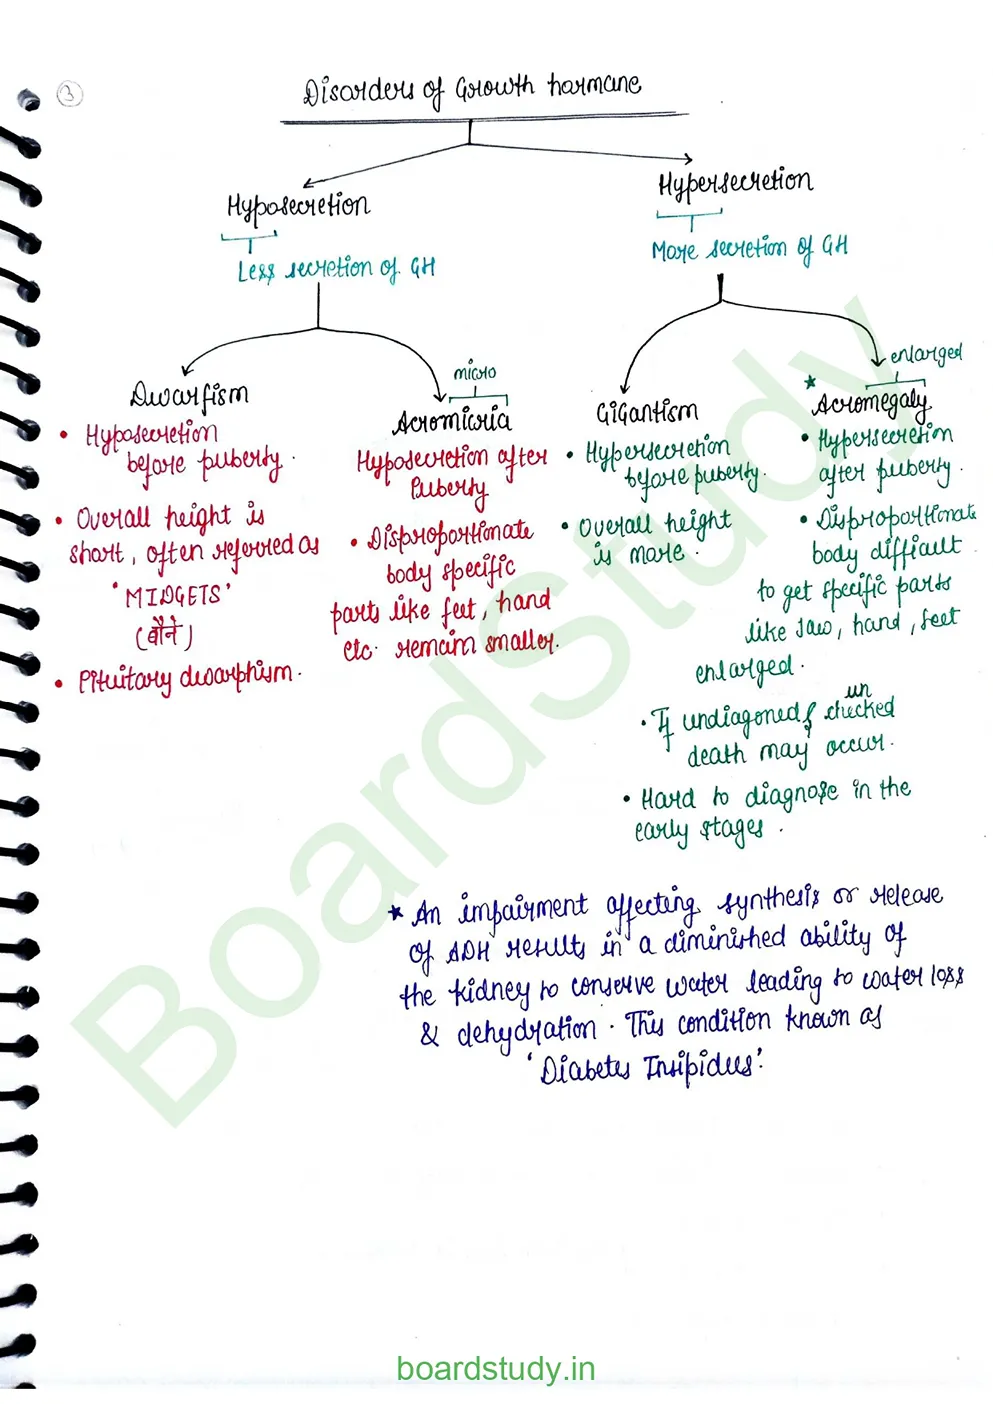 3
Disorders of Growth hormone
Hyposecretion
Less secretion of GH
Hypersecretion
More secretion of GH
Dwarfism
• Hyposecretion
before puberty.
• Overall height is
short, often referred as
'MIDGETS'
(बौने)
• Pituitary dwarphism.
micro
Acromicria
Hyposecretion after
Puberty
• Disproportionate
body specific
parts like feet, hand
etc. remain smaller.
GiGantism
• Hypersecretion
before puberty.
• Overall height
is more.
enlarged
★ Acromegaly
• Hypersecretion
after puberty.
• Disproportionate
body difficult
to get specific parts
like Jaw, hand, feet
enlarged.
un
• If undiagoned & checked
death may occur.
• Hard to diagnose in the
early stages.
★ An impairment affecting synthesis or release
of ADH results in a diminished ability of
the kidney to conserve water leading to water loss
& dehydration. This condition known as
'Diabetes Insipidus'.
BoardStudy
boardstudy.in